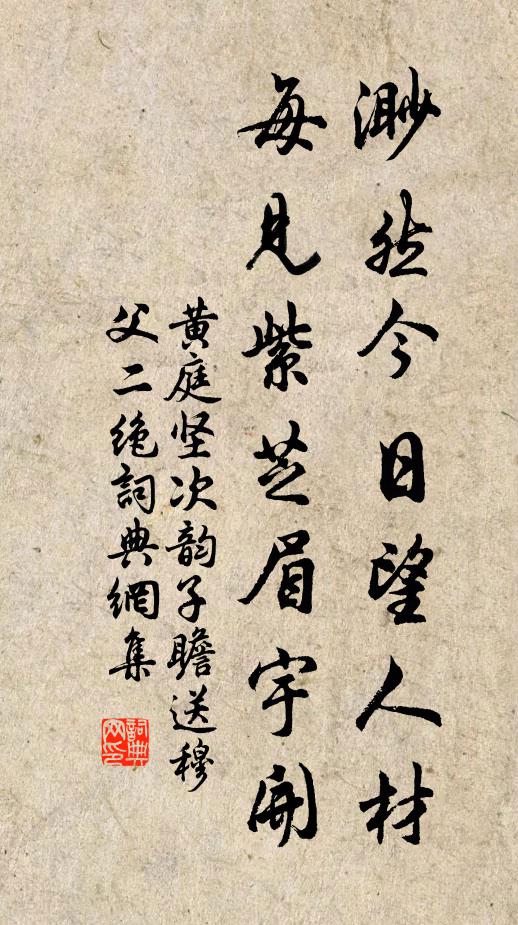 渺然今日望人材
每见紫芝眉宇开
黄庭坚次韵子瞻送穆
父二绝詞典網集
詞典
网印